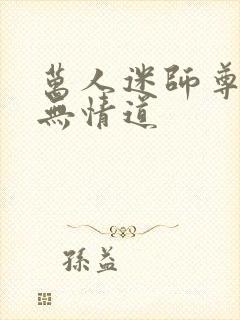 萬人迷師尊
無情道
孫益